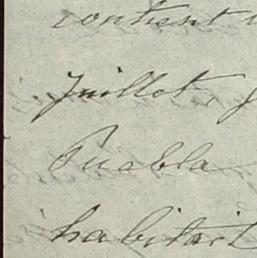 contient
Juillet,
Puebla
habitait